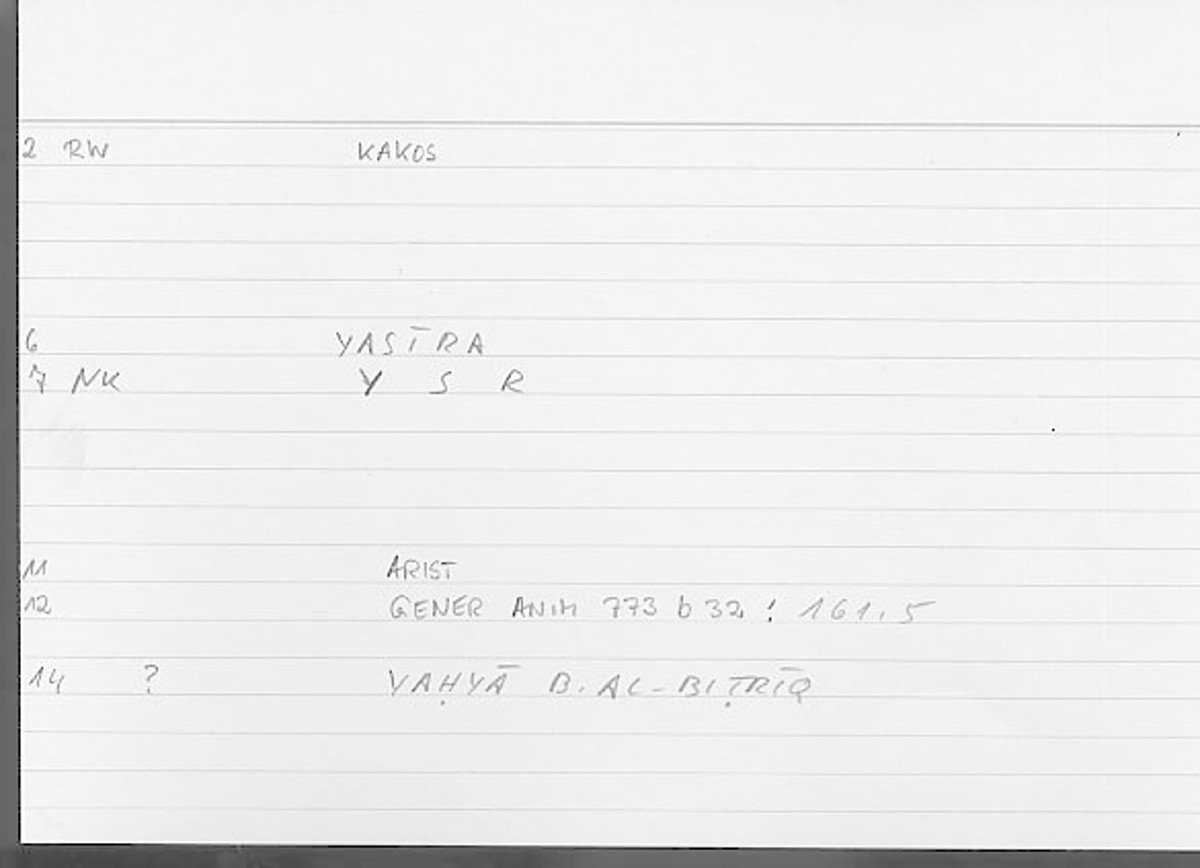 2 RW KAKOS
6 YASĪRA
7 NK Y S R
11 ARIST
12 GENER ANIM 773 b 32 : 161.5
14 ? YAḤYĀ B. AL-BIṬRĪQ